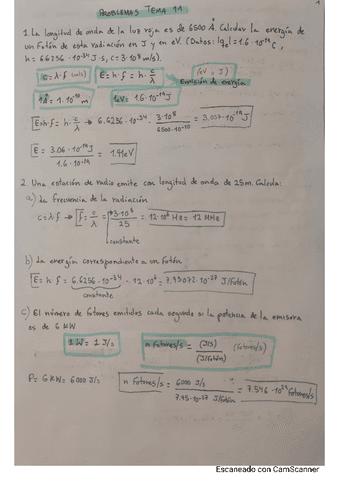 1
PROBLEMAS TEMA 11
1. La longitud de onda de la luz roja es de 6500 Å. Calcular la energía de
un fotón de esta radiación en J y en eV. (Datos: |qe|=1.6·10⁻¹⁹C,
h=6.6256·10⁻³⁴ J·s, c=3·10⁸ m/s).
c=λ·f (m/s) E=h·f=h·c/λ (eV o J) Emisión de energía
1Å=1·10⁻¹⁰ m 1eV=1.6·10⁻¹⁹ J
E=h·f=h·c/λ → 6.6256·10⁻³⁴ · 3·10⁸/6500·10⁻¹⁰ = 3.057·10⁻¹⁹ J
E = 3.06·10⁻¹⁹J/1.6·10⁻¹⁹ = 1.91eV
2. Una estación de radio emite con longitud de onda de 25m. Calcula:
a) La frecuencia de la radiación
c=λ·f → f=c/λ = 3·10⁸/25 = 12·10⁶ Hz = 12 MHz
constante
b) La energía correspondiente a un fotón
E=h·f = 6.6256·10⁻³⁴ · 12·10⁶ = 7.95072·10⁻²⁷ J/fotón
constante
c) El número de fotones emitidos cada segundo si la potencia de la emisora
es de 6 kW
1W = 1 J/s n fotones/s = (J/s)/(J/fotón) (fotones/s)
P= 6 kW = 6000 J/s n fotones/s = 6000 J/s/7.95·10⁻²⁷ J/fotón = 7.546·10²⁹ fotones/s
Escaneado con CamScanner